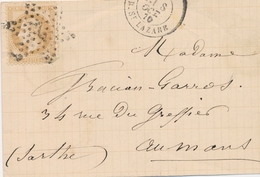 R. ST LAZARE
Madame
Gracian-Garros
34 rue du Greffier
au mans
(Sarthe)